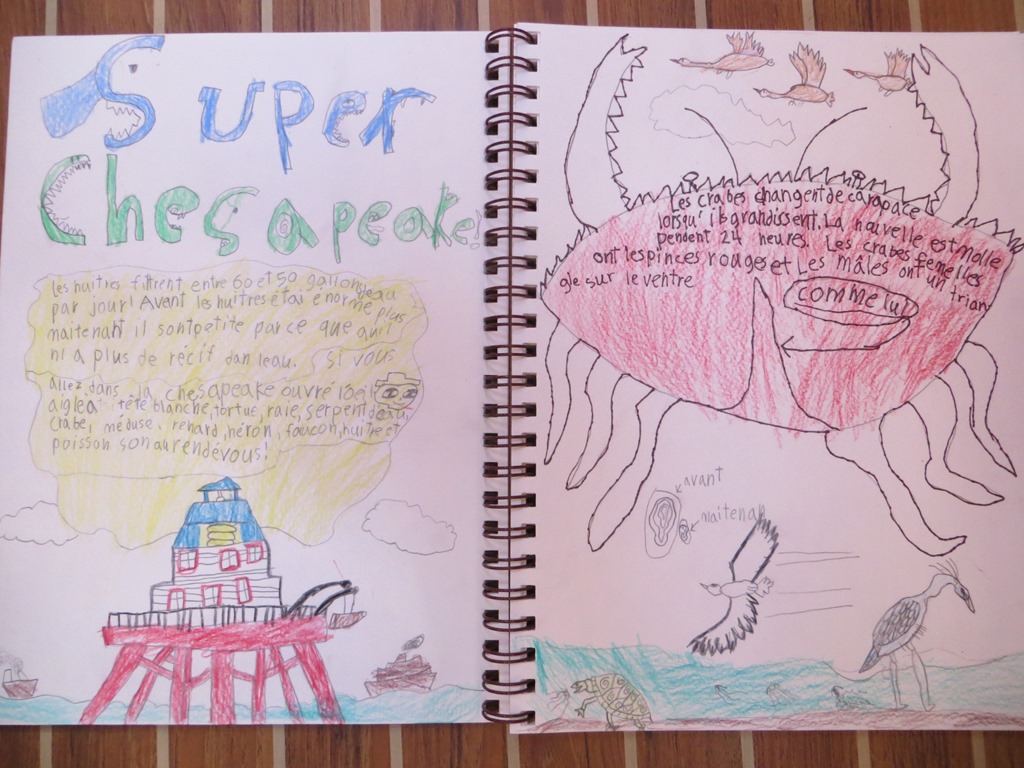 Super
Chesapeake!
Les huitres filtrent entre 60 et 50 gallonsdeau
par jour! Avant les huitres étai enorme plus
maitenant il sontpetite parce que quil
ni a plus de récif dan leau. Si vous
allez dans la chesapeake ouvré l'oeil
aigle a tête blanche, tortue, raie, serpent deau,
crabe, méduse, renard, héron, foucon, huitre et
poisson son au rendévous!
Les crabes changent de carapace
lorsqu' ils grandissent. La nouvelle est molle
pendent 24 heures. Les crabes femelles
ont les pinces rouges et Les mâles ont un trian
gle sur le ventre
comme lui
avant
maitenan